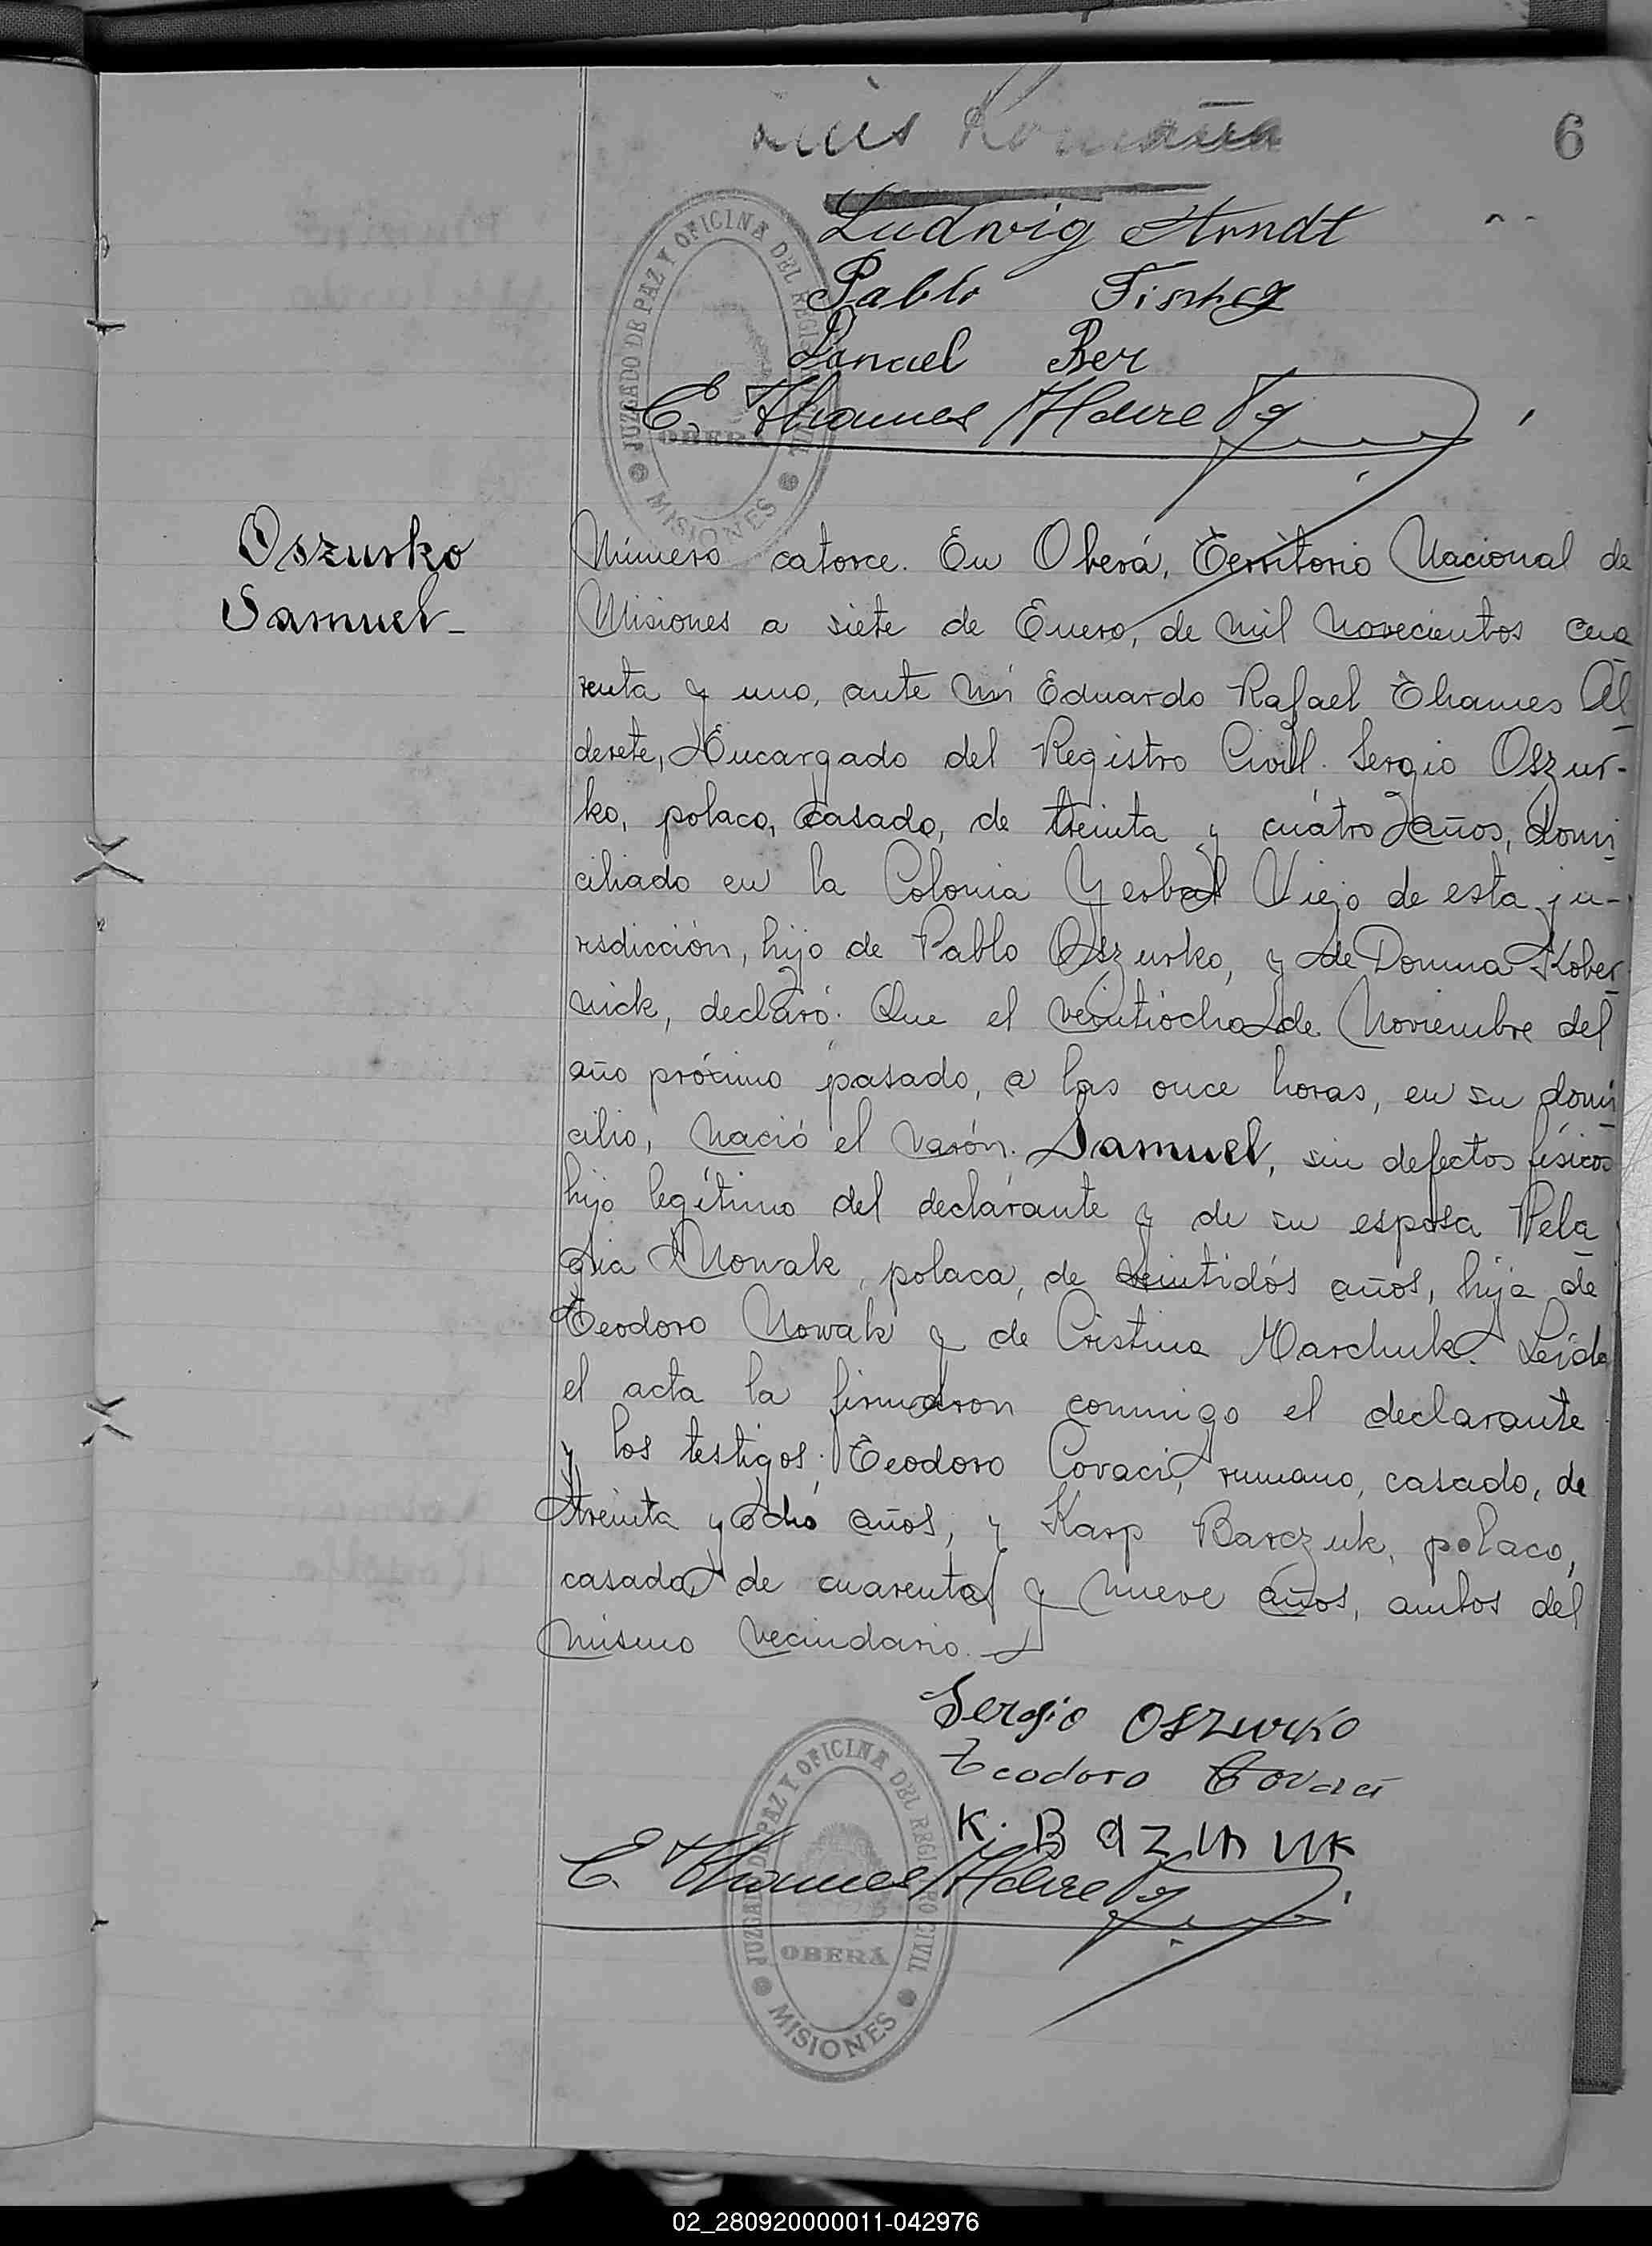 6
Luis Romaña
Ludwig Arndt
Pablo
Samuel Ber
E. Thames Alderete
JUZGADO DE PAZ Y OFICINA DEL REGISTRO CIVIL
OBERÁ
MISIONES
Oszurko
Samuel-
Número catorce. En Oberá, Territorio Nacional de
Misiones a siete de Enero, de mil novecientos cua
renta y uno, ante mí Eduardo Rafael Thames Al
derete, Encargado del Registro Civil. Sergio Oszur-
ko, polaco, casado, de treinta y cuátro años, domi
ciliado en la Colonia Yerbal Viejo de esta ju-
risdicción, hijo de Pablo Oszurko, y de Domna Kober
nick, declaró: Que el veintiocho de Noviembre del
año próximo pasado, a las once horas, en su domi
cilio, nació el varón. Samuel, sin defectos físicos
hijo legítimo del declarante y de su esposa Pela
gia Nowak, polaca, de veintidós años, hija de
Teodoro Nowak y de Cristina Marchuk. Leída
el acta la firmaron conmigo el declarante
y los testigos: Teodoro Covaci, rumano, casado, de
treinta y ocho años, y Karp Barczuk, polaco,
casado, de cuarenta y nueve años, ambos del
mismo vecindario.
Sergio Oszurko
Teodoro Covaci
K.
E. Thames Alderete
JUZGADO DE PAZ Y OFICINA DEL REGISTRO CIVIL
OBERÁ
MISIONES
02_280920000011-042976